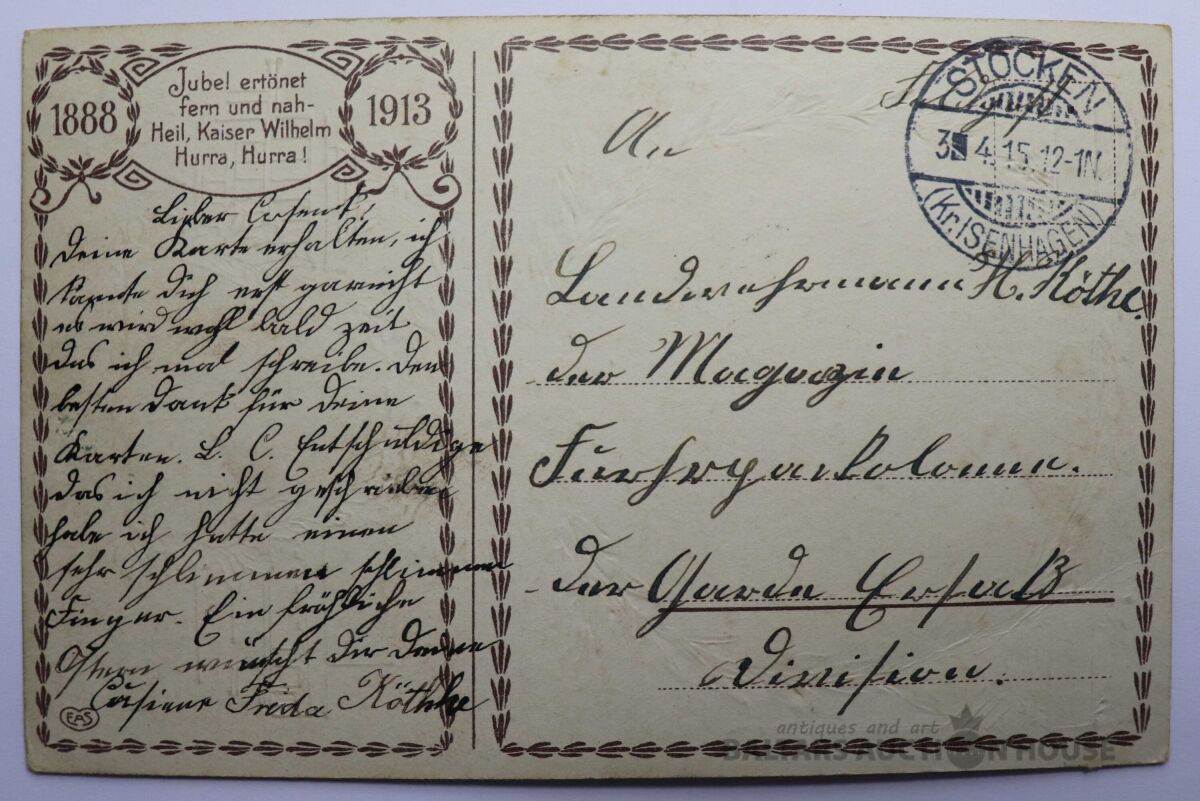 1888
Jubel ertönet
fern und nah-
Heil, Kaiser Wilhelm
Hurra, Hurra!
1913
Lieber
Deine Karte erhalten, ich
kannte dich erst garnicht
es wird wohl bald zeit
das ich mal schreibe. Den
besten Dank für deine
Karten. L. C. Entschuldige
das ich nicht geschrieben
habe ich hatte einen
sehr schlimmen schlimmen
Finger. Ein fröhliche
Ostern wünscht Dir Deine
Cusiene Frida Köthke
EAS
STÖCKEN
3. 4. 15. 12-1N.
(Kr. ISENHAGEN)
An
Landwehrmann H. Köthe.
der Magazin
Fuhrparkolonne.
der Garde Ersatz
Division.
antiques and art
BALTARS AUCTION HOUSE